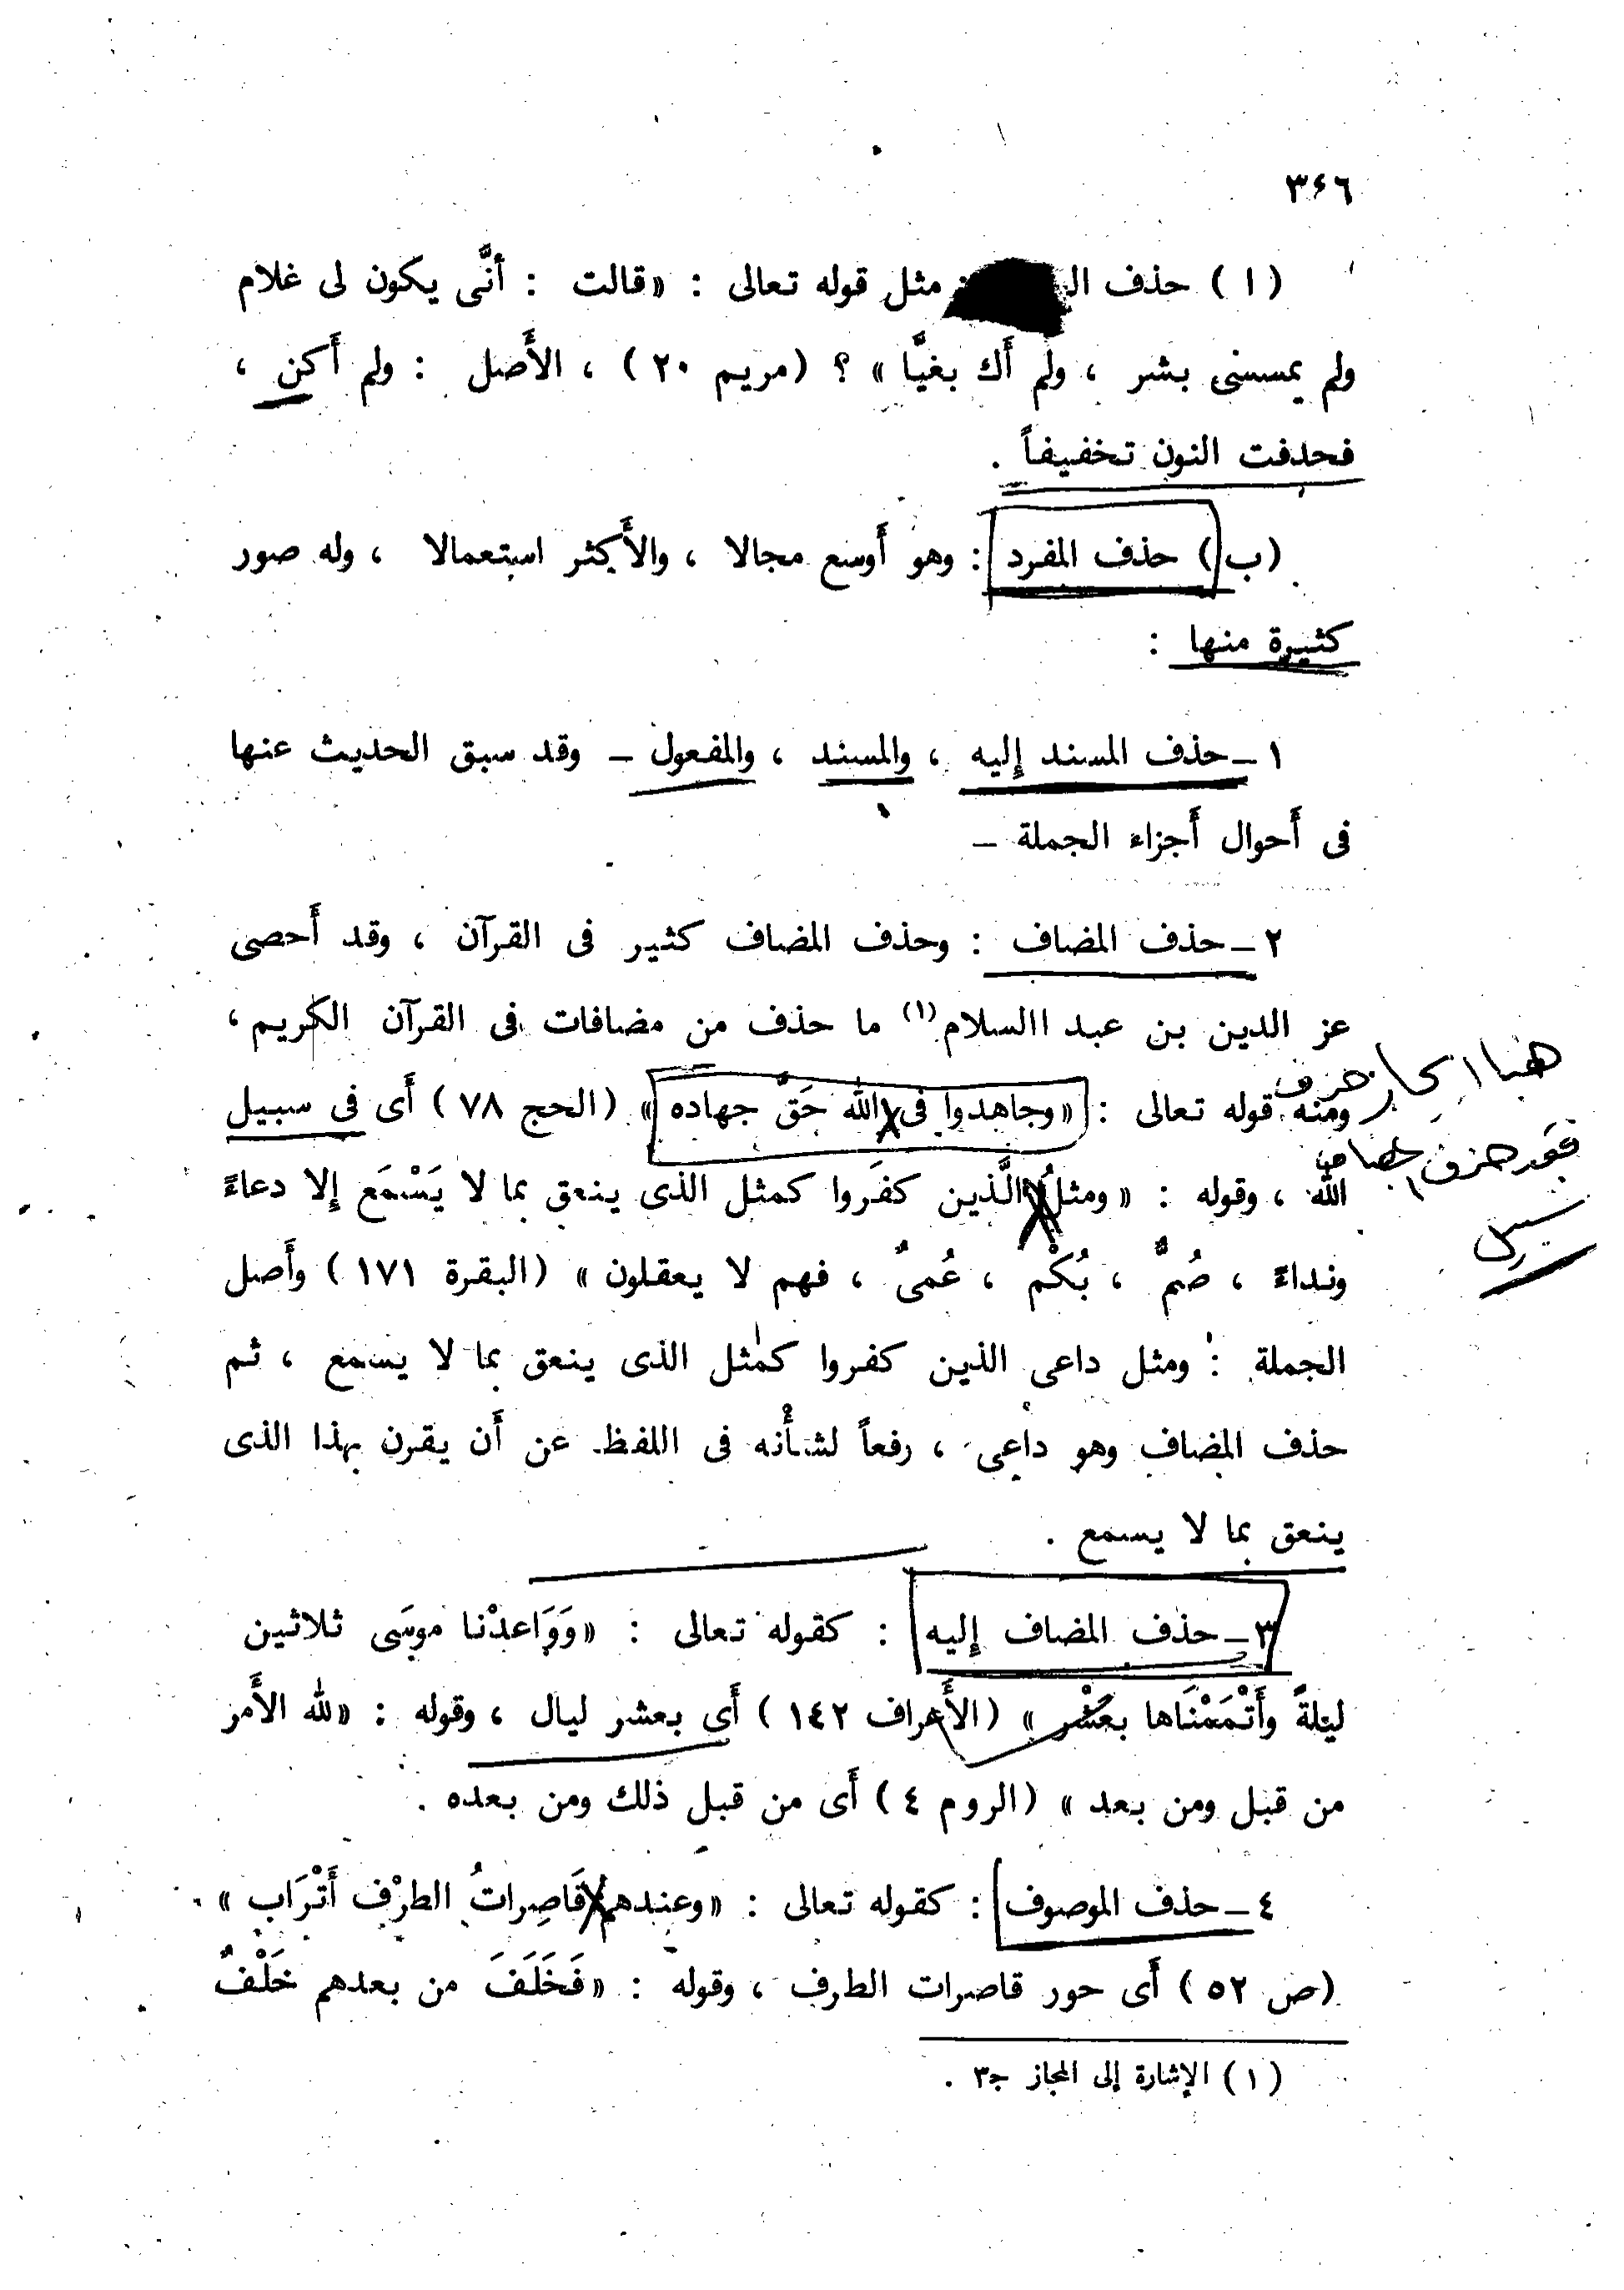 ٣٤٦
( ا ) حذف مثل قوله تعالى : «قالت : أنَّى يكون لى غلام
ولم يمسسنى بشر ، ولم أَك بغيًّا » ؟ (مريم ٢٠ ) ، الأَصل : ولم أَكن ،
فحذفت النون تخفيفاً .
(ب ) حذف المفرد : وهو أَوسع مجالا ، والأَكثر استعمالا ، وله صور
كثيرة منها :
١ – حذف المسند إليه ، والمسند ، والمفعول – وقد سبق الحديث عنها
فى أَحوال أَجزاء الجملة –
٢ – حذف المضاف : وحذف المضاف كثير فى القرآن ، وقد أَحصى
عز الدين بن عبد االسلام(١) ما حذف من مضافات فى القرآن الكريم ،
ومنه قوله تعالى : «وجاهدوا فى الله حَقَّ جهاده » (الحج ٧٨ ) أَى فى سبيل
الله ، وقوله : «ومثلُ الَّذين كفَروا كمثل الذى ينعق بما لا يَسْمَع إلا دعاءً
ونداءً ، صُمٌّ ، بُكْم ، عُمىٌ ، فهم لا يعقلون » (البقرة ١٧١ ) وأَصل
الجملة : ومثل داعى الذين كفروا كمثل الذى ينعق بما لا يسمع ، ثم
حذف المضاف وهو داعى ، رفعاً لشأْنه فى اللفظ عن أَن يقرن بهذا الذى
ينعق بما لا يسمع .
٣ – حذف المضاف إليه : كقوله تعالى : «وَوَاعدْنا موسَى ثلاثين
ليلةً وأَتْمَمْنَاها بعَشْر » (الأَعراف ١٤٢ ) أَى بعشر ليال ، وقوله : «لله الأَمر
من قبل ومن بعد » (الروم ٤ ) أَى من قبل ذلك ومن بعده .
٤ – حذف الموصوف : كقوله تعالى : «وعندهم قَاصِراتُ الطرْف أَتْرَاب »
(ص ٥٢ ) أَى حور قاصرات الطرف ، وقوله : «فَخَلَفَ من بعدهم خَلْفٌ
( ١ ) الإشارة إلى المجاز ج٣ .
هنا ايجاز حذف
فقد حذف المضاف
سبيل